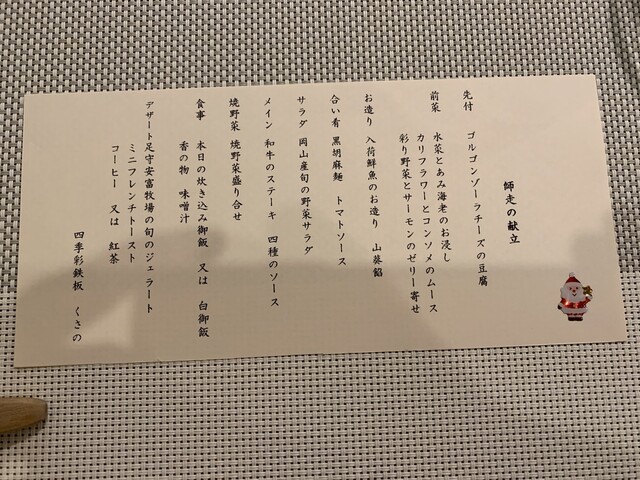 師走の献立
先付　ゴルゴンゾーラチーズの豆腐
前菜　水菜とあみ海老のお浸し
カリフラワーとコンソメのムース
彩り野菜とサーモンのゼリー寄せ
お造り　入荷鮮魚のお造り　山葵餡
合い肴　黒胡麻麺　トマトソース
サラダ　岡山産旬の野菜サラダ
メイン　和牛のステーキ　四種のソース
焼野菜　焼野菜盛り合せ
食事　本日の炊き込み御飯　又は　白御飯
香の物　味噌汁
デザート　足守安富牧場の旬のジェラート
ミニフレンチトースト
コーヒー　又は　紅茶
四季彩鉄板　くさの